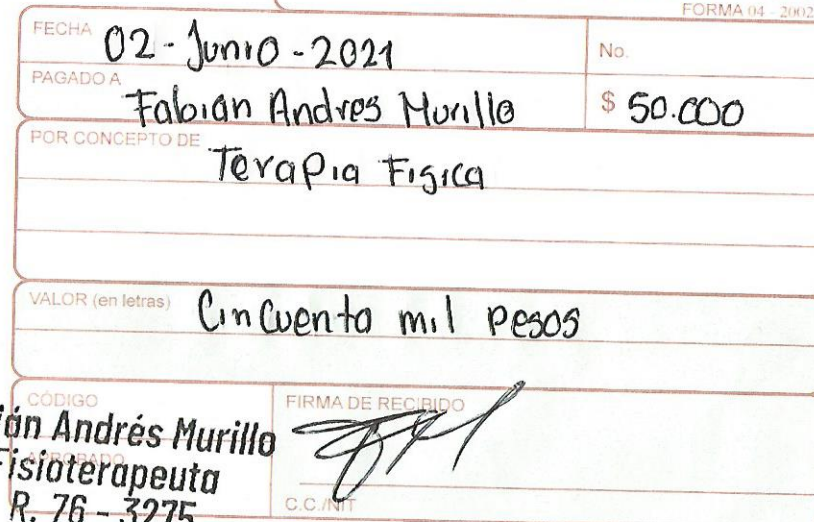 FORMA 04 - 2002
FECHA 02 - Junio - 2021
No.
PAGADO A Fabian Andres Murillo
$ 50.000
POR CONCEPTO DE Terapia Fisica
VALOR (en letras) Cincuenta mil pesos
CÓDIGO
FIRMA DE RECIBIDO
ián Andrés Murillo
APROBADO
Fisioterapeuta
R. 76 - 3275
C.C./NIT